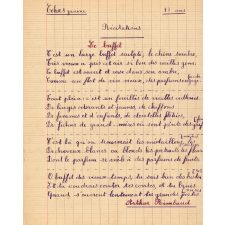 13 ans
Récitations
Le buffet
C'est un large buffet sculpté; le chêne sombre,
Très vieux a pris cet air si bon des vieilles gens.
Le buffet est ouvert et verse dans son ombre,
Comme un flot de vin vieux, des parfums
Tout plein: c'est un fouillis de vieilles
De linges odorants et jaunes, de chiffons
De femmes et d'enfants, de dentelles flétries,
De fichus de grand-mère où sont peints des
C'est là qu'on trouverait les médaillons,
De cheveux blancs ou blonds, les portraits, les fleurs
Dont le parfum se mêle à des parfums de fruits.
O buffet du vieux temps, tu sais bien des
Et tu voudrais conter tes contes, et tu bruis
Quand s'ouvrent lentement tes grandes portes
Arthur Rimbaud